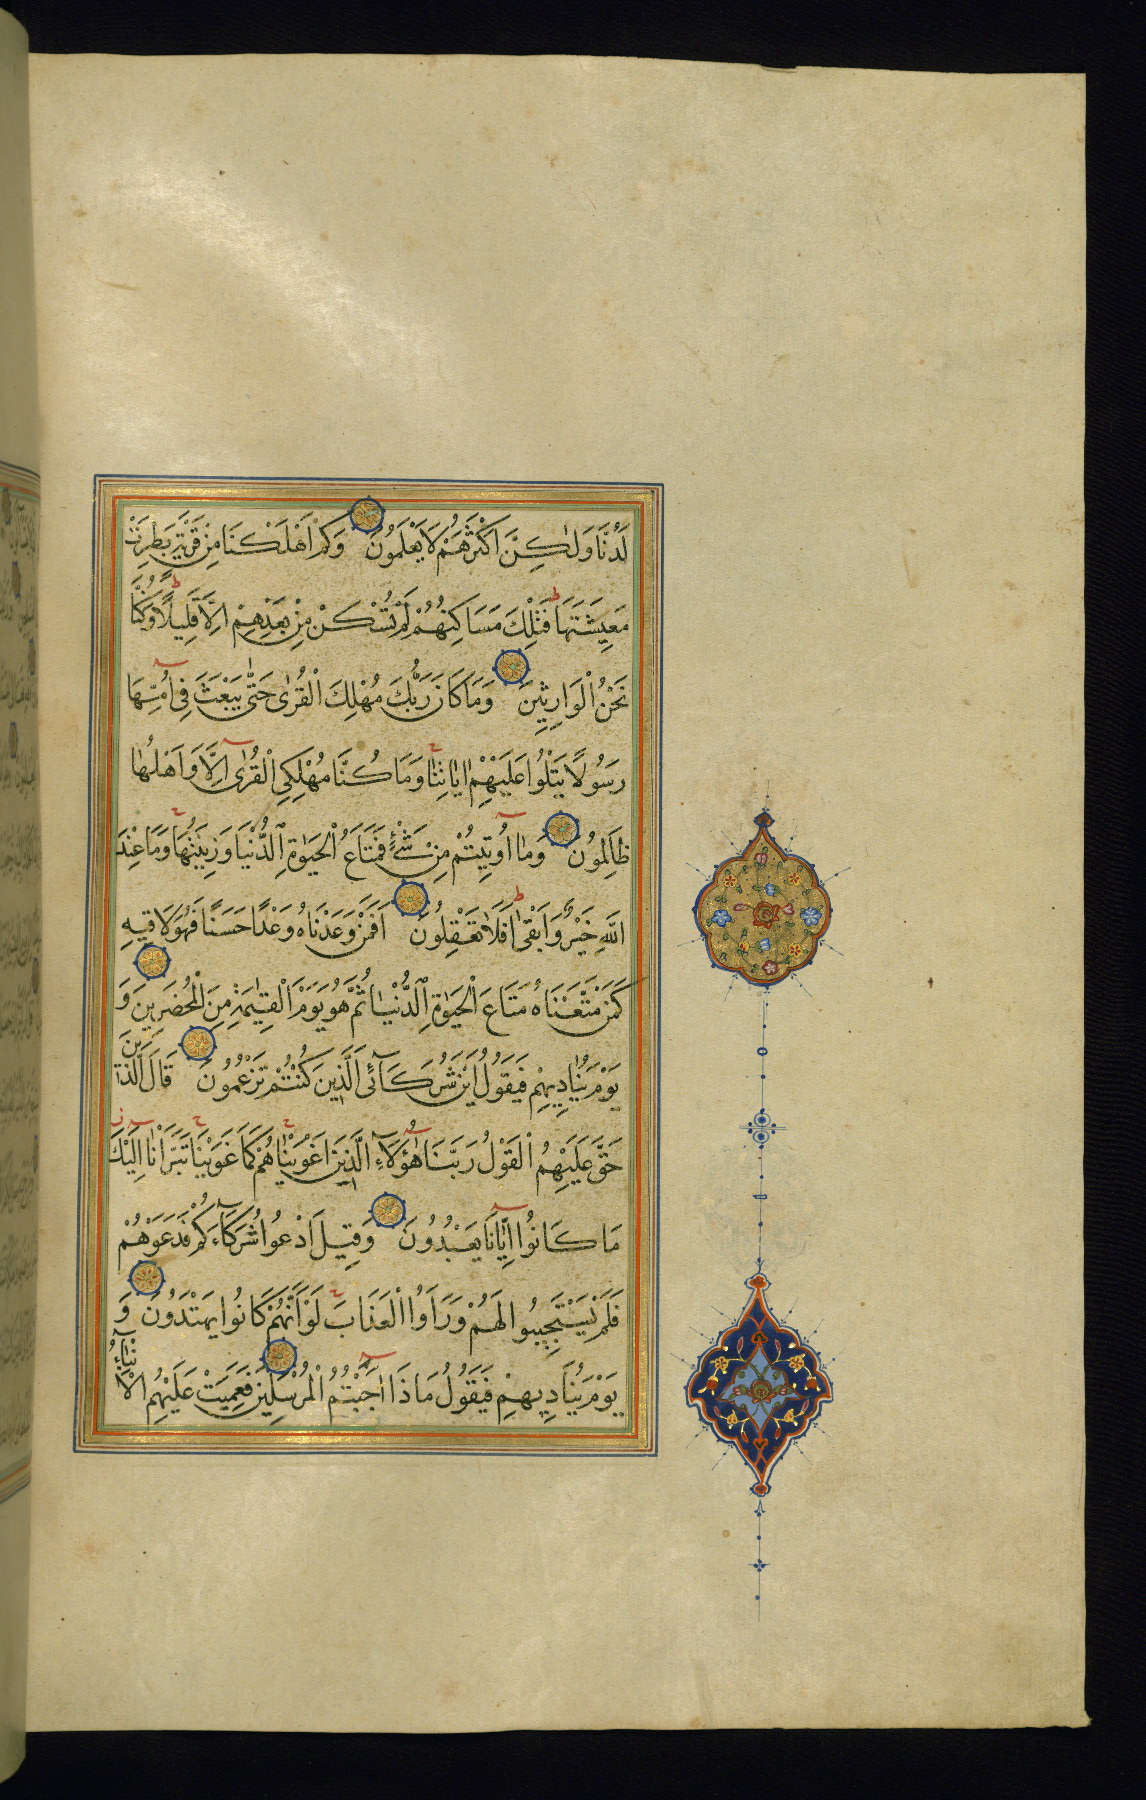 لَدُنَّا وَلٰكِنَّ اَكْثَرَهُمْ لَا يَعْلَمُونَ وَكَمْ اَهْلَكْنَا مِنْ قَرْيَةٍ بَطِرَتْ
مَعِيشَتَهَا ط فَتِلْكَ مَسَاكِنُهُمْ لَمْ تُسْكَنْ مِنْ بَعْدِهِمْ اِلَّا قَلِيلًا ط وَكُنَّا
نَحْنُ الْوَارِثِينَ وَمَا كَانَ رَبُّكَ مُهْلِكَ الْقُرٰى حَتّٰى يَبْعَثَ فِى اُمِّهَا
رَسُولًا يَتْلُوا عَلَيْهِمْ اٰيَاتِنَا ج وَمَا كُنَّا مُهْلِكِى الْقُرٰى اِلَّا وَاَهْلُهَا
ظَالِمُونَ وَمَا اُوتِيتُمْ مِنْ شَيْءٍ فَمَتَاعُ الْحَيٰوةِ الدُّنْيَا وَزِينَتُهَا ج وَمَا عِنْدَ
اللّٰهِ خَيْرٌ وَاَبْقٰى ط اَفَلَا تَعْقِلُونَ اَفَمَنْ وَعَدْنَاهُ وَعْدًا حَسَنًا فَهُوَ لَاقِيهِ
كَمَنْ مَتَّعْنَاهُ مَتَاعَ الْحَيٰوةِ الدُّنْيَا ثُمَّ هُوَ يَوْمَ الْقِيٰمَةِ مِنَ الْمُحْضَرِينَ وَ
يَوْمَ يُنَادِيهِمْ فَيَقُولُ اَيْنَ شُرَكَآئِىَ الَّذِينَ كُنْتُمْ تَزْعُمُونَ قَالَ الَّذِينَ
حَقَّ عَلَيْهِمُ الْقَوْلُ رَبَّنَا هٰؤُلَآءِ الَّذِينَ اَغْوَيْنَا ج اَغْوَيْنَاهُمْ كَمَا غَوَيْنَا ج تَبَرَّاْنَا اِلَيْكَ
مَا كَانُوا اِيَّانَا يَعْبُدُونَ وَقِيلَ ادْعُوا شُرَكَآءَكُمْ فَدَعَوْهُمْ
فَلَمْ يَسْتَجِيبُوا لَهُمْ وَرَاَوُا الْعَذَابَ ج لَوْ اَنَّهُمْ كَانُوا يَهْتَدُونَ وَ
يَوْمَ يُنَادِيهِمْ فَيَقُولُ مَاذَا اَجَبْتُمُ الْمُرْسَلِينَ فَعَمِيَتْ عَلَيْهِمُ الْاَنْبَآءُ